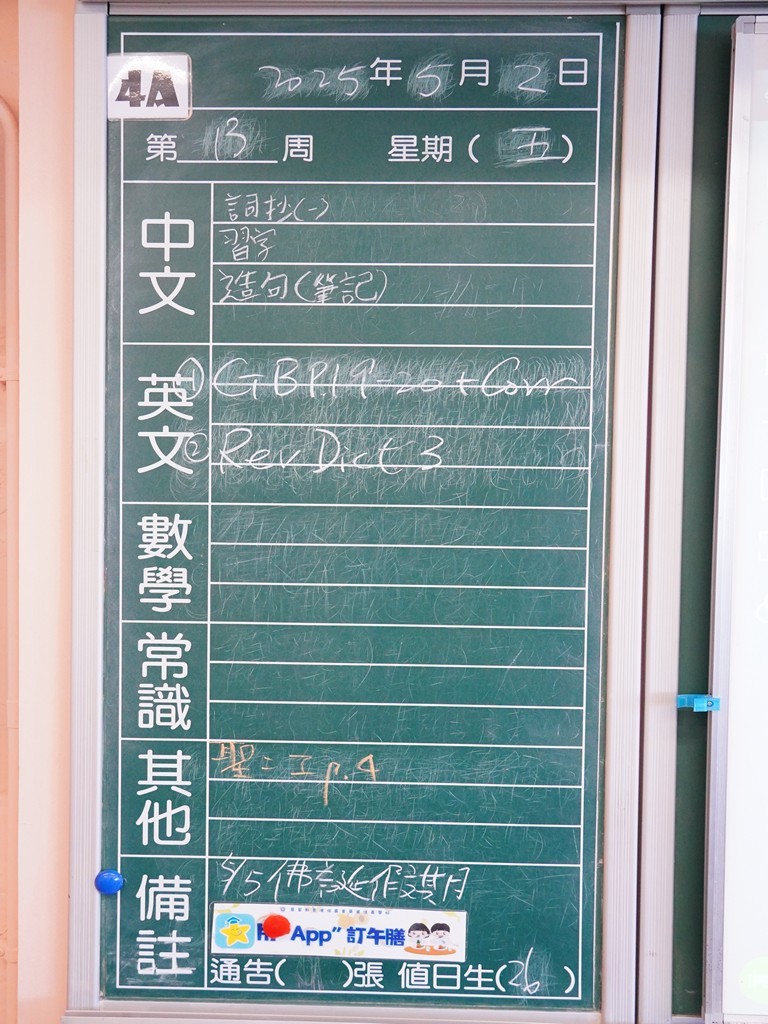 4A
2025年5月2日
第13周 星期(五)
中文
詞抄(一)
習字
造句(筆記)
英文
① GBP19-20+Corr
② Rev Dict 3
數學
常識
其他
聖：工p.4
備註
5/5佛誕假期
"App"訂午膳
通告( )張 值日生(26)